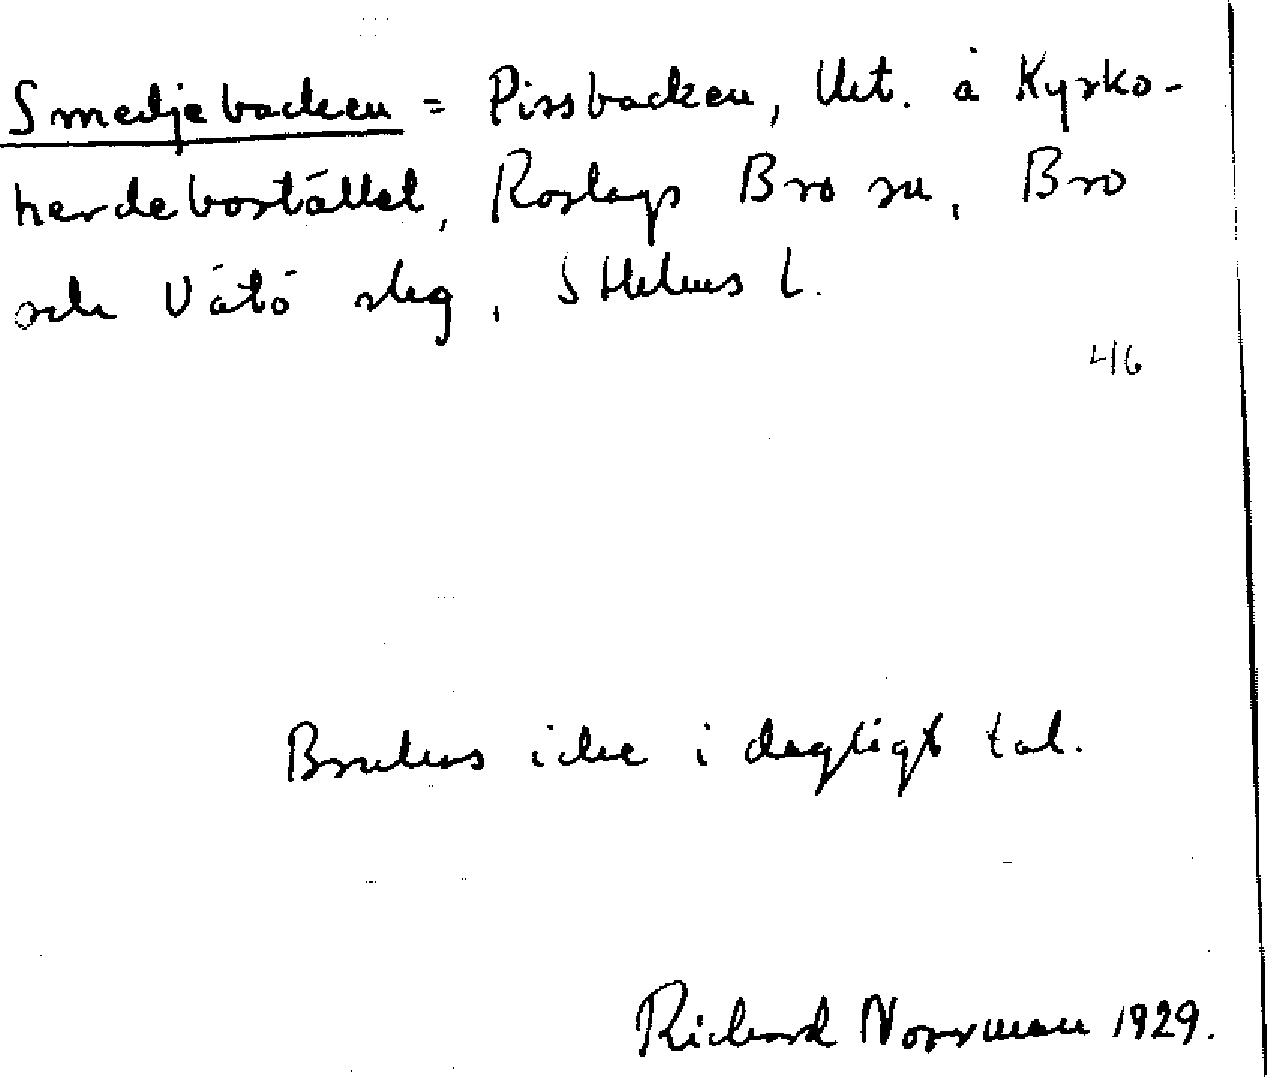 Smedjebacken = Pissbacken, Ut. å Kyrko-
herdebostället, Roslags Bro sn, Bro
och Vätö slg, Sthlms l.
46
Brukas icke i dagligt tal.
Richard Norrman 1929.